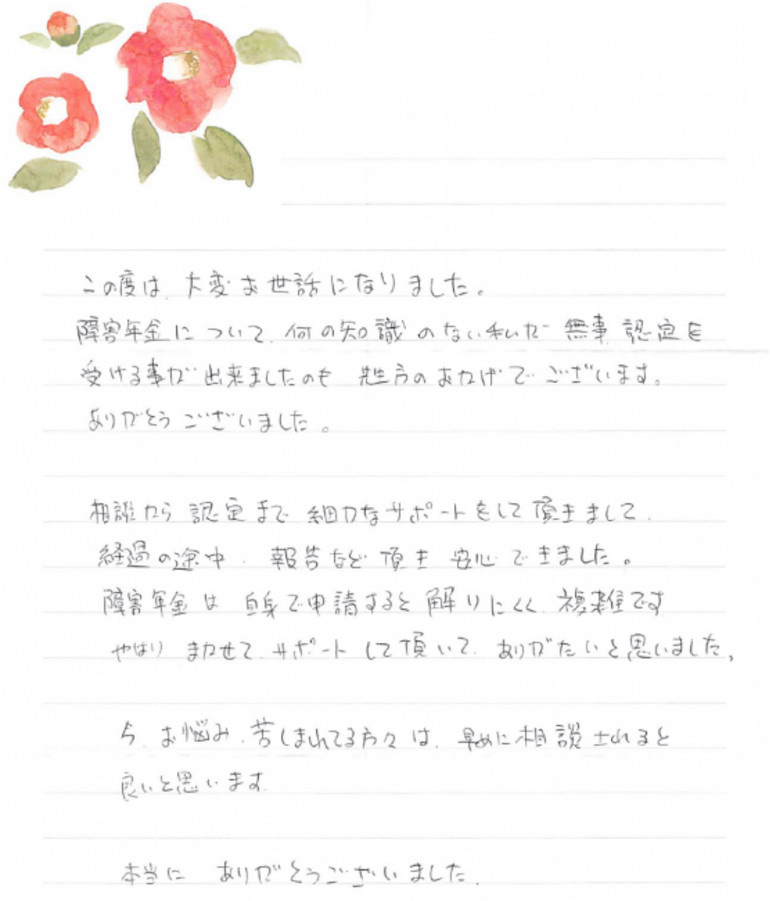 この度は 大変お世話になりました。
障害年金について、何の知識のない私が 無事 認定を
受ける事が出来ましたのも 先生方のおかげでございます。
ありがとうございました。
相談から 認定まで 細かなサポートをして頂きまして、
経過の途中、報告など頂き 安心できました。
障害年金は 自身で申請すると解りにくく、複雑です
やはり まかせて、サポートして頂いて、ありがたいと思いました。
今、お悩み、苦しまれてる方々は、早めに相談されると
良いと思います
本当に ありがとうございました。